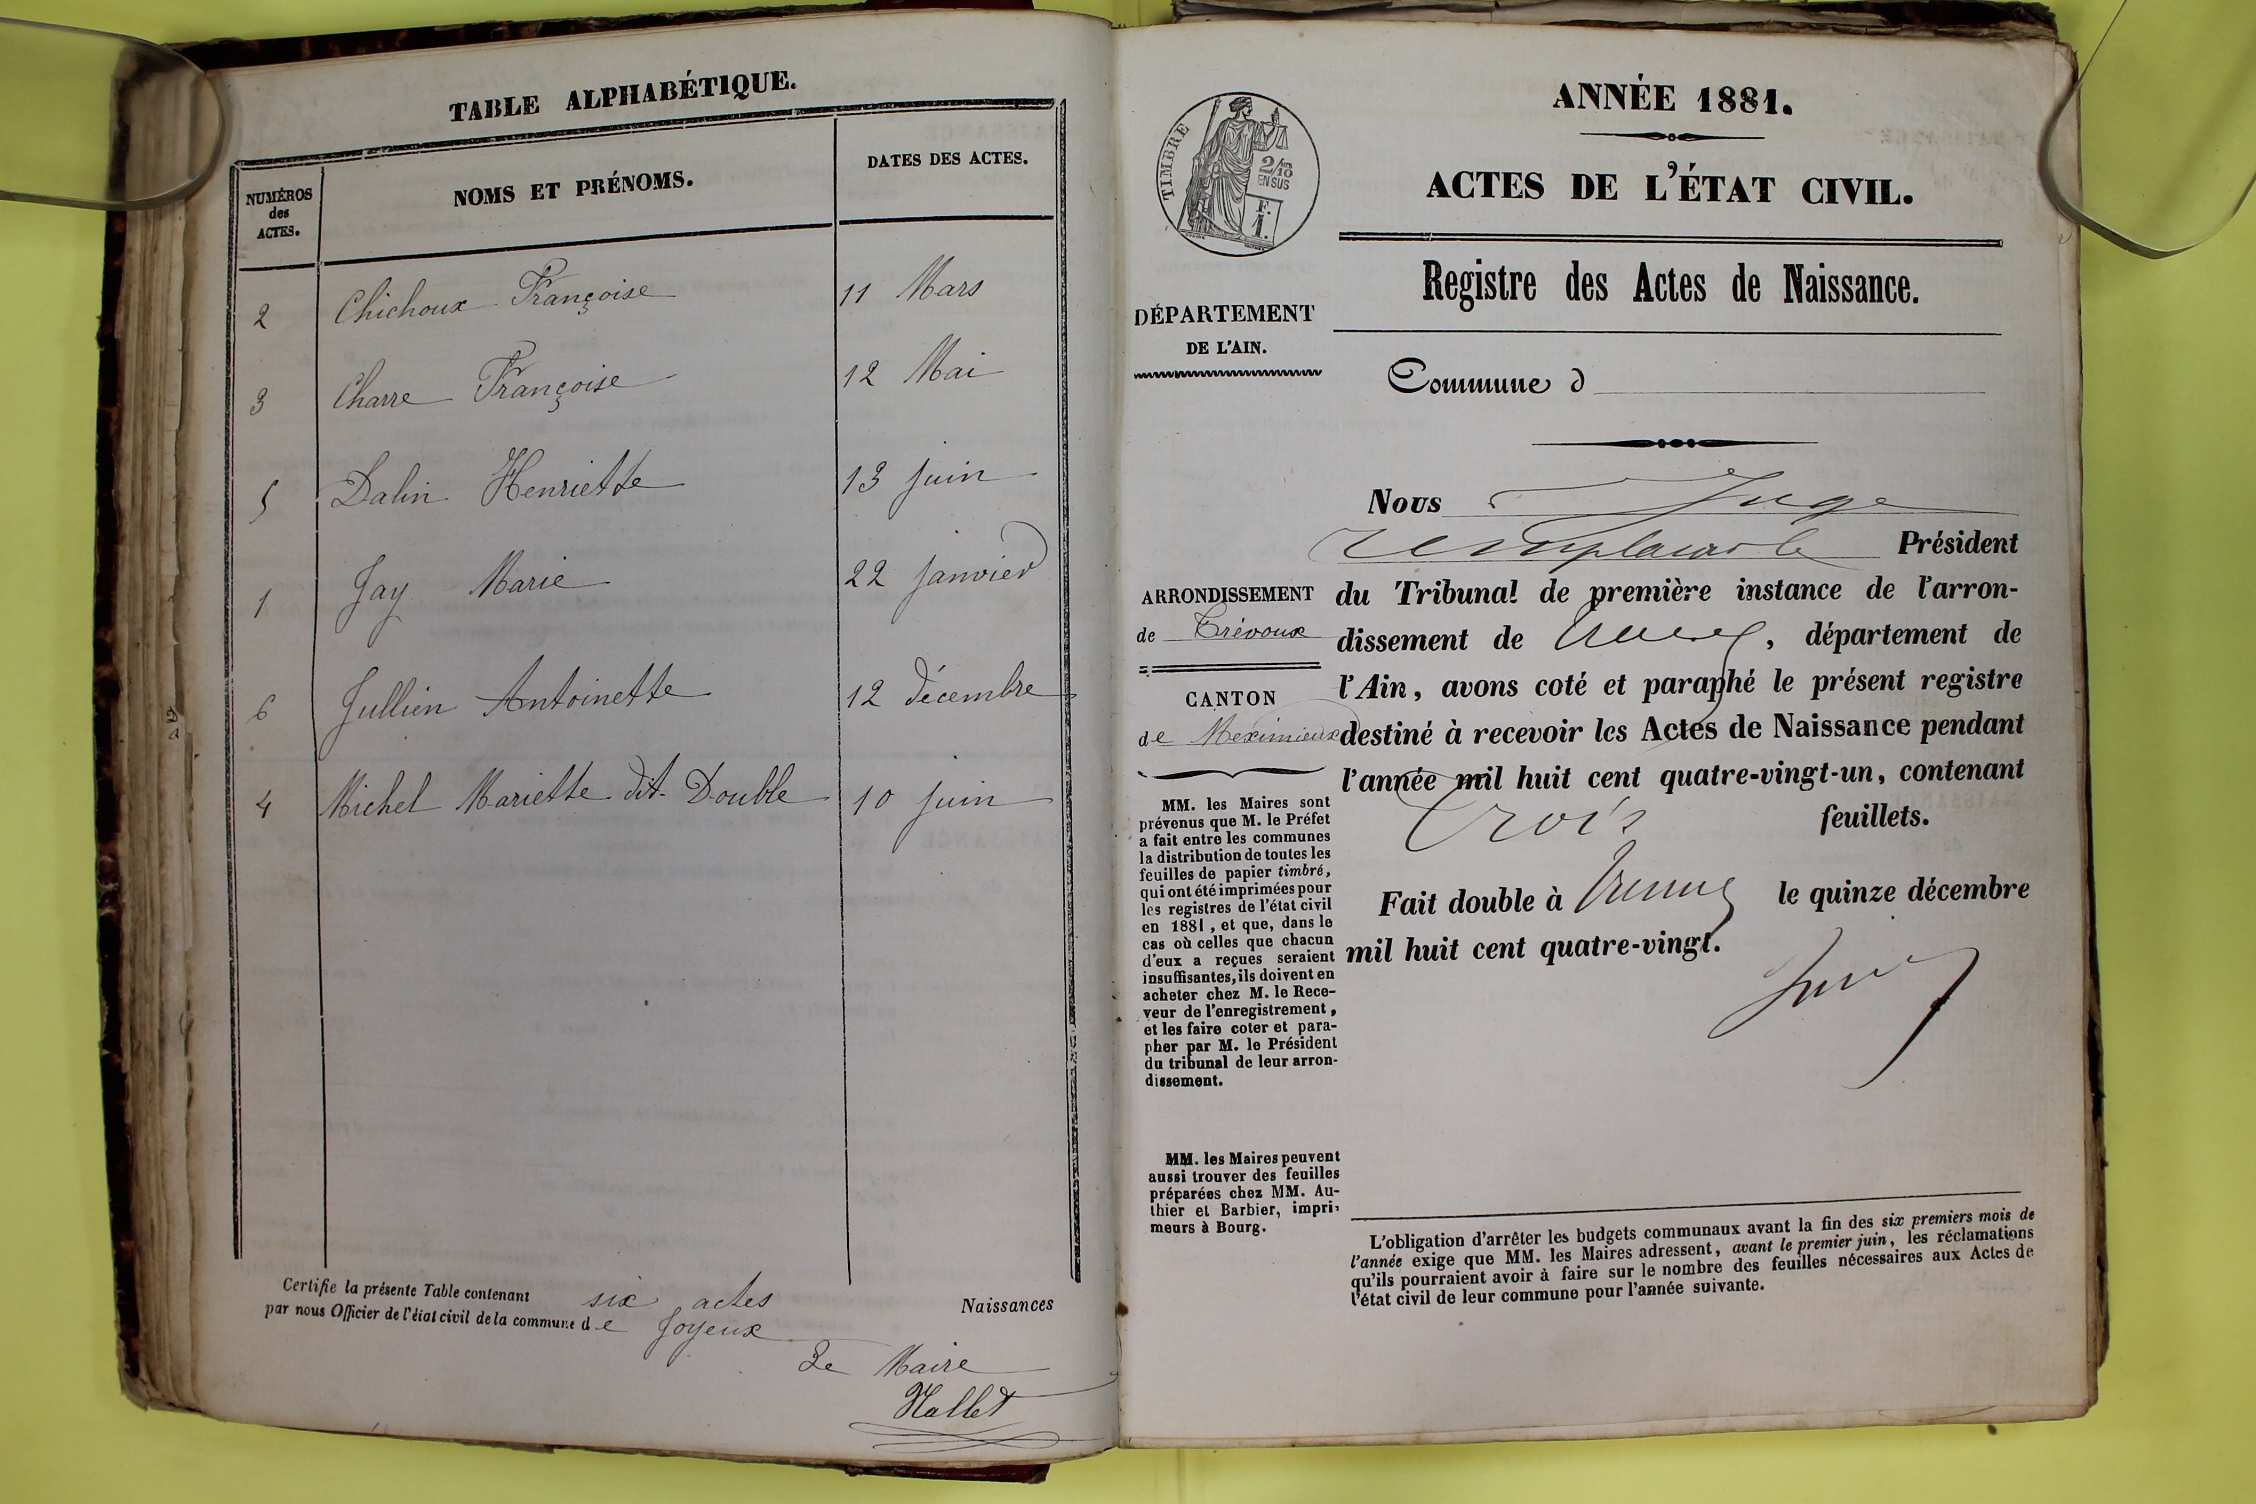 TABLE ALPHABÉTIQUE.
NUMÉROS
des
ACTES.
NOMS ET PRÉNOMS.
DATES DES ACTES.
2 Chichoux Françoise 11 Mars
3 Charre Françoise 12 Mai
5 Dalin Henriette 13 juin
1 Jay Marie 22 janvier
6 Jullien Antoinette 12 décembre
4 Michel Mariette dit Double 10 juin
Certifie la présente Table contenant six actes Naissances
par nous Officier de l'état civil de la commune de Joyeux
Le Maire
Mallet
ANNÉE 1881.
ACTES DE L'ÉTAT CIVIL.
TIMBRE
2/10
EN SUS
F.
1.
Registre des Actes de Naissance.
DÉPARTEMENT
DE L'AIN.
Commune d
ARRONDISSEMENT
de Trévoux
CANTON
de Meximieux
MM. les Maires sont
prévenus que M. le Préfet
a fait entre les communes
la distribution de toutes les
feuilles de papier timbré,
qui ont été imprimées pour
les registres de l'état civil
en 1881, et que, dans le
cas où celles que chacun
d'eux a reçues seraient
insuffisantes, ils doivent en
acheter chez M. le Rece-
veur de l'enregistrement,
et les faire coter et para-
pher par M. le Président
du tribunal de leur arron-
dissement.
MM. les Maires peuvent
aussi trouver des feuilles
préparées chez MM. Au-
thier et Barbier, impri-
meurs à Bourg.
Nous Juge
remplaçant le Président
du Tribunal de première instance de l'arron-
dissement de Trévoux, département de
l'Ain, avons coté et paraphé le présent registre
destiné à recevoir les Actes de Naissance pendant
l'année mil huit cent quatre-vingt-un, contenant
trois feuillets.
Fait double à Trévoux le quinze décembre
mil huit cent quatre-vingt.
L'obligation d'arrêter les budgets communaux avant la fin des six premiers mois de
l'année exige que MM. les Maires adressent, avant le premier juin, les réclamations
qu'ils pourraient avoir à faire sur le nombre des feuilles nécessaires aux Actes de
l'état civil de leur commune pour l'année suivante.